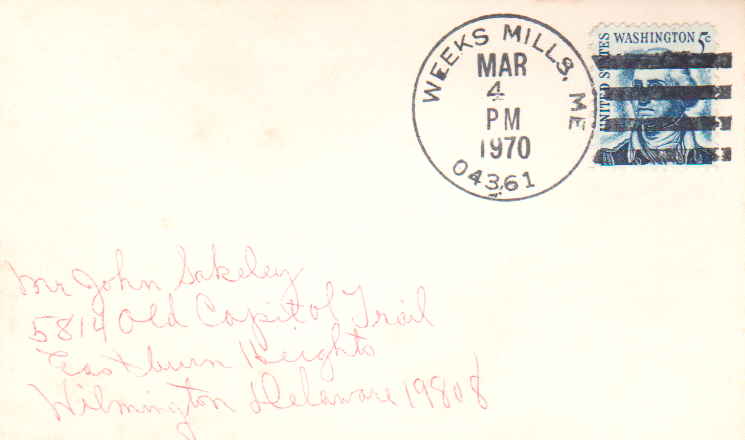 WEEKS MILLS, ME
MAR
4
PM
1970
04361
UNITED STATES
WASHINGTON 5c
Mr John Sakeley
5814 Old Capitol Trail
Eastburn Heights
Wilmington Delaware 19808